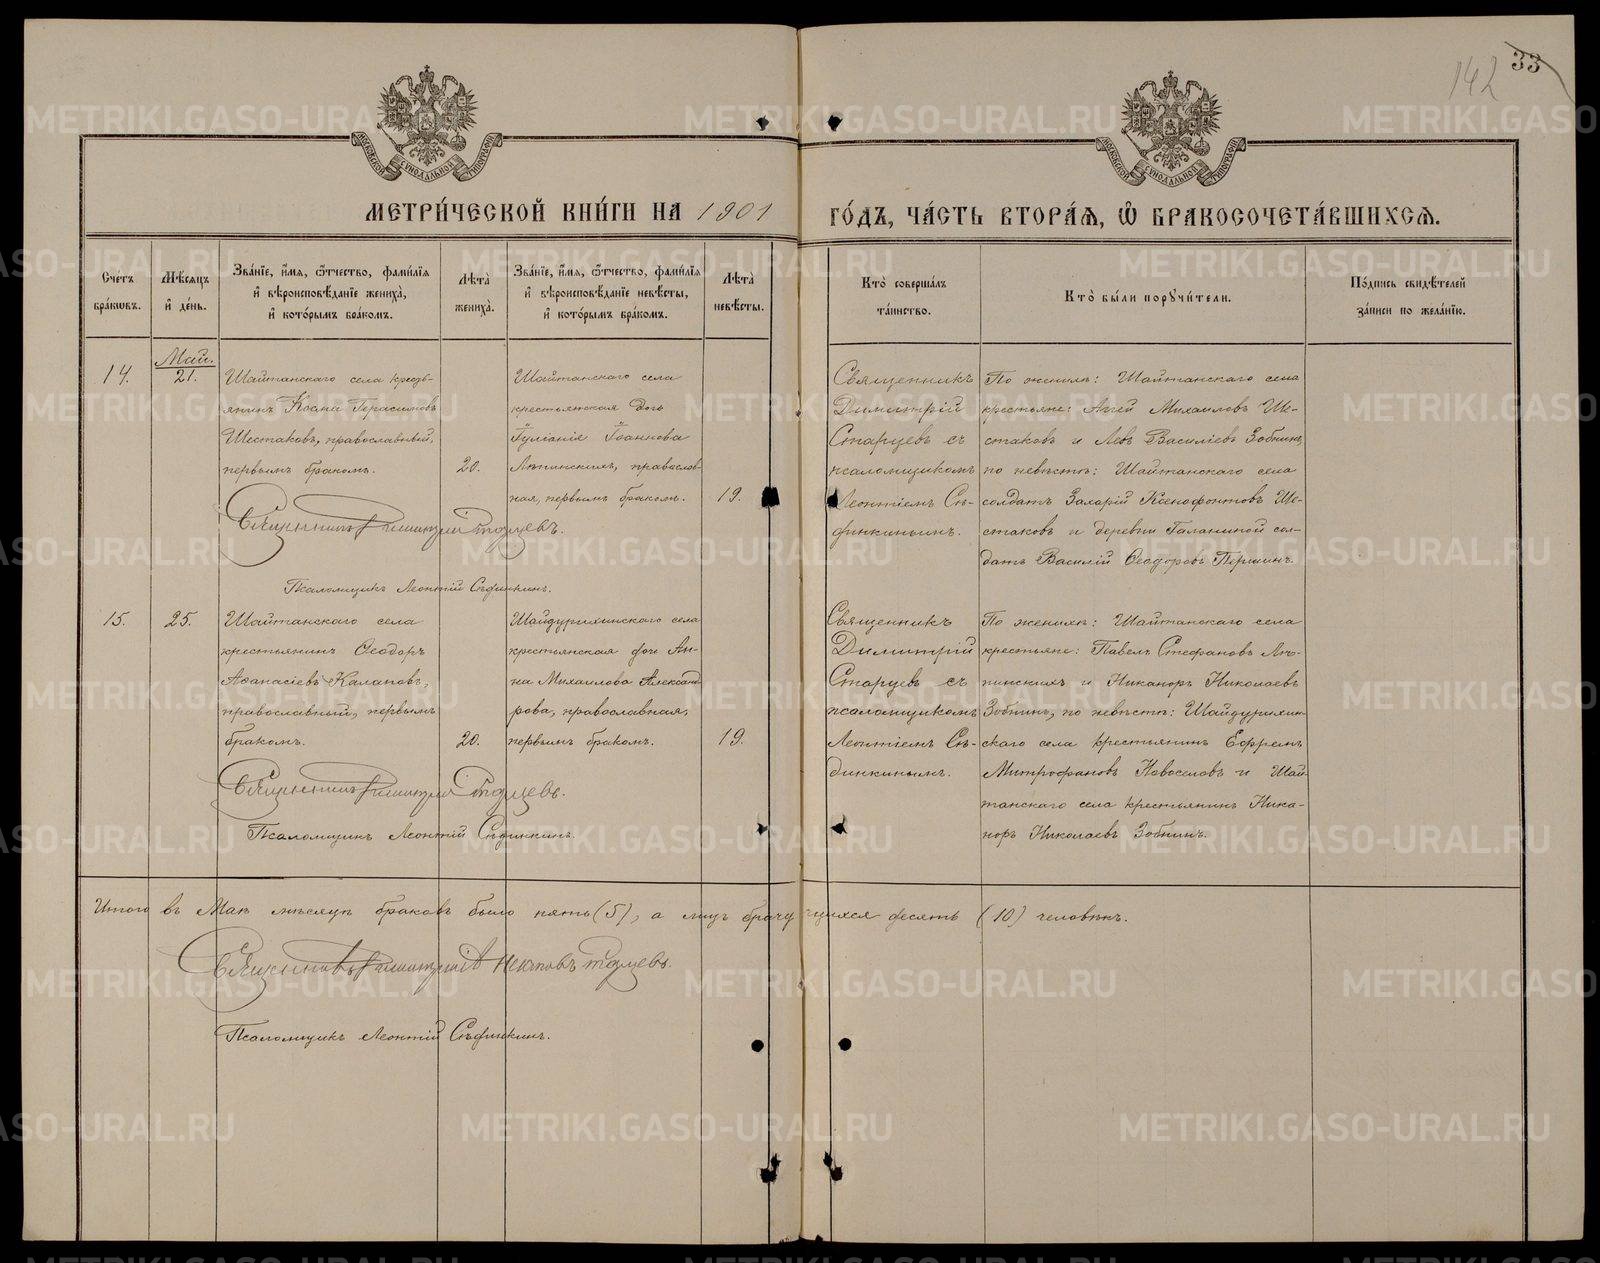 142
33
МОСКОВСКОЙ СѴНОДАЛЬНОЙ ТИПОГРАФІИ
МОСКОВСКОЙ СѴНОДАЛЬНОЙ ТИПОГРАФІИ
МЕТРИ́ЧЕСКОЙ КНИ́ГИ НА 1901 ГО́ДЪ, ЧА́СТЬ ВТОРА́Ѧ, Ѽ БРАКОСОЧЕТА́ВШИХСѦ.
Сче́тъ
бра́кѡвъ.
Мѣ́сѧцъ
и҆ де́нь.
Зва́нїе, и҆́мѧ, ѻ҆́тчество, фами́лїѧ
и҆ вѣроисповѣ́данїе жениха̀,
и҆ кото́рымъ бра́комъ.
Лѣта̀
жениха̀.
Зва́нїе, и҆́мѧ, ѻ҆́тчество, фами́лїѧ
и҆ вѣроисповѣ́данїе невѣ́сты,
и҆ кото́рымъ бра́комъ.
Лѣта̀
невѣ́сты.
Кто̀ соверша́лъ
та́инство.
Кто̀ бы́ли порꙋчи́тели.
По́дпись свидѣ́телей
за́писи по жела́нїю.
14.
Май.
21.
Шайтанскаго села кресть-
янинъ Косма Герасимовъ
Шестаковъ, православный,
первымъ бракомъ.
20.
Шайтанскаго села
крестьянская дочь
Іуліанія Іоаннова
Лѣпинскихъ, православ-
ная, первымъ бракомъ.
19.
Священникъ
Димитрій
Старцевъ съ
псаломщикомъ
Леонтіемъ Сѣ-
динкинымъ.
По женихѣ: Шайтанскаго села
крестьяне: Аггей Михаиловъ Ше-
стаковъ и Левъ Василіевъ Зобнинъ,
по невѣстѣ: Шайтанскаго села
солдатъ Захарій Ксенофонтовъ Ше-
стаковъ и деревни Галаниной сол-
датъ Василій Ѳеодоровъ Першинъ.
Священникъ Димитрій Старцевъ.
Псаломщикъ Леонтій Сѣдинкинъ.
15.
25.
Шайтанскаго села
крестьянинъ Ѳеодоръ
Аѳанасіевъ Калаповъ,
православный, первымъ
бракомъ.
20.
Шайдурихинскаго села
крестьянская дочь Ан-
на Михаилова Александ-
рова, православная,
первымъ бракомъ.
19.
Священникъ
Димитрій
Старцевъ съ
псаломщикомъ
Леонтіемъ Сѣ-
динкинымъ.
По женихѣ: Шайтанскаго села
крестьяне: Павелъ Стефановъ Лѣ-
пинскихъ и Никаноръ Николаевъ
Зобнинъ, по невѣстѣ: Шайдурихин-
скаго села крестьянинъ Ефремъ
Митрофановъ Новоселовъ и Шай-
танскаго села крестьянинъ Ника-
норъ Николаевъ Зобнинъ.
Священникъ Димитрій Старцевъ.
Псаломщикъ Леонтій Сѣдинкинъ.
Итого въ Маѣ мѣсяцѣ браковъ было пять (5), а лицъ брачущихся десять (10) человѣкъ.
Священникъ Димитрій Старцевъ.
Псаломщикъ Леонтій Сѣдинкинъ.
METRIKI.GASO-URAL.RU